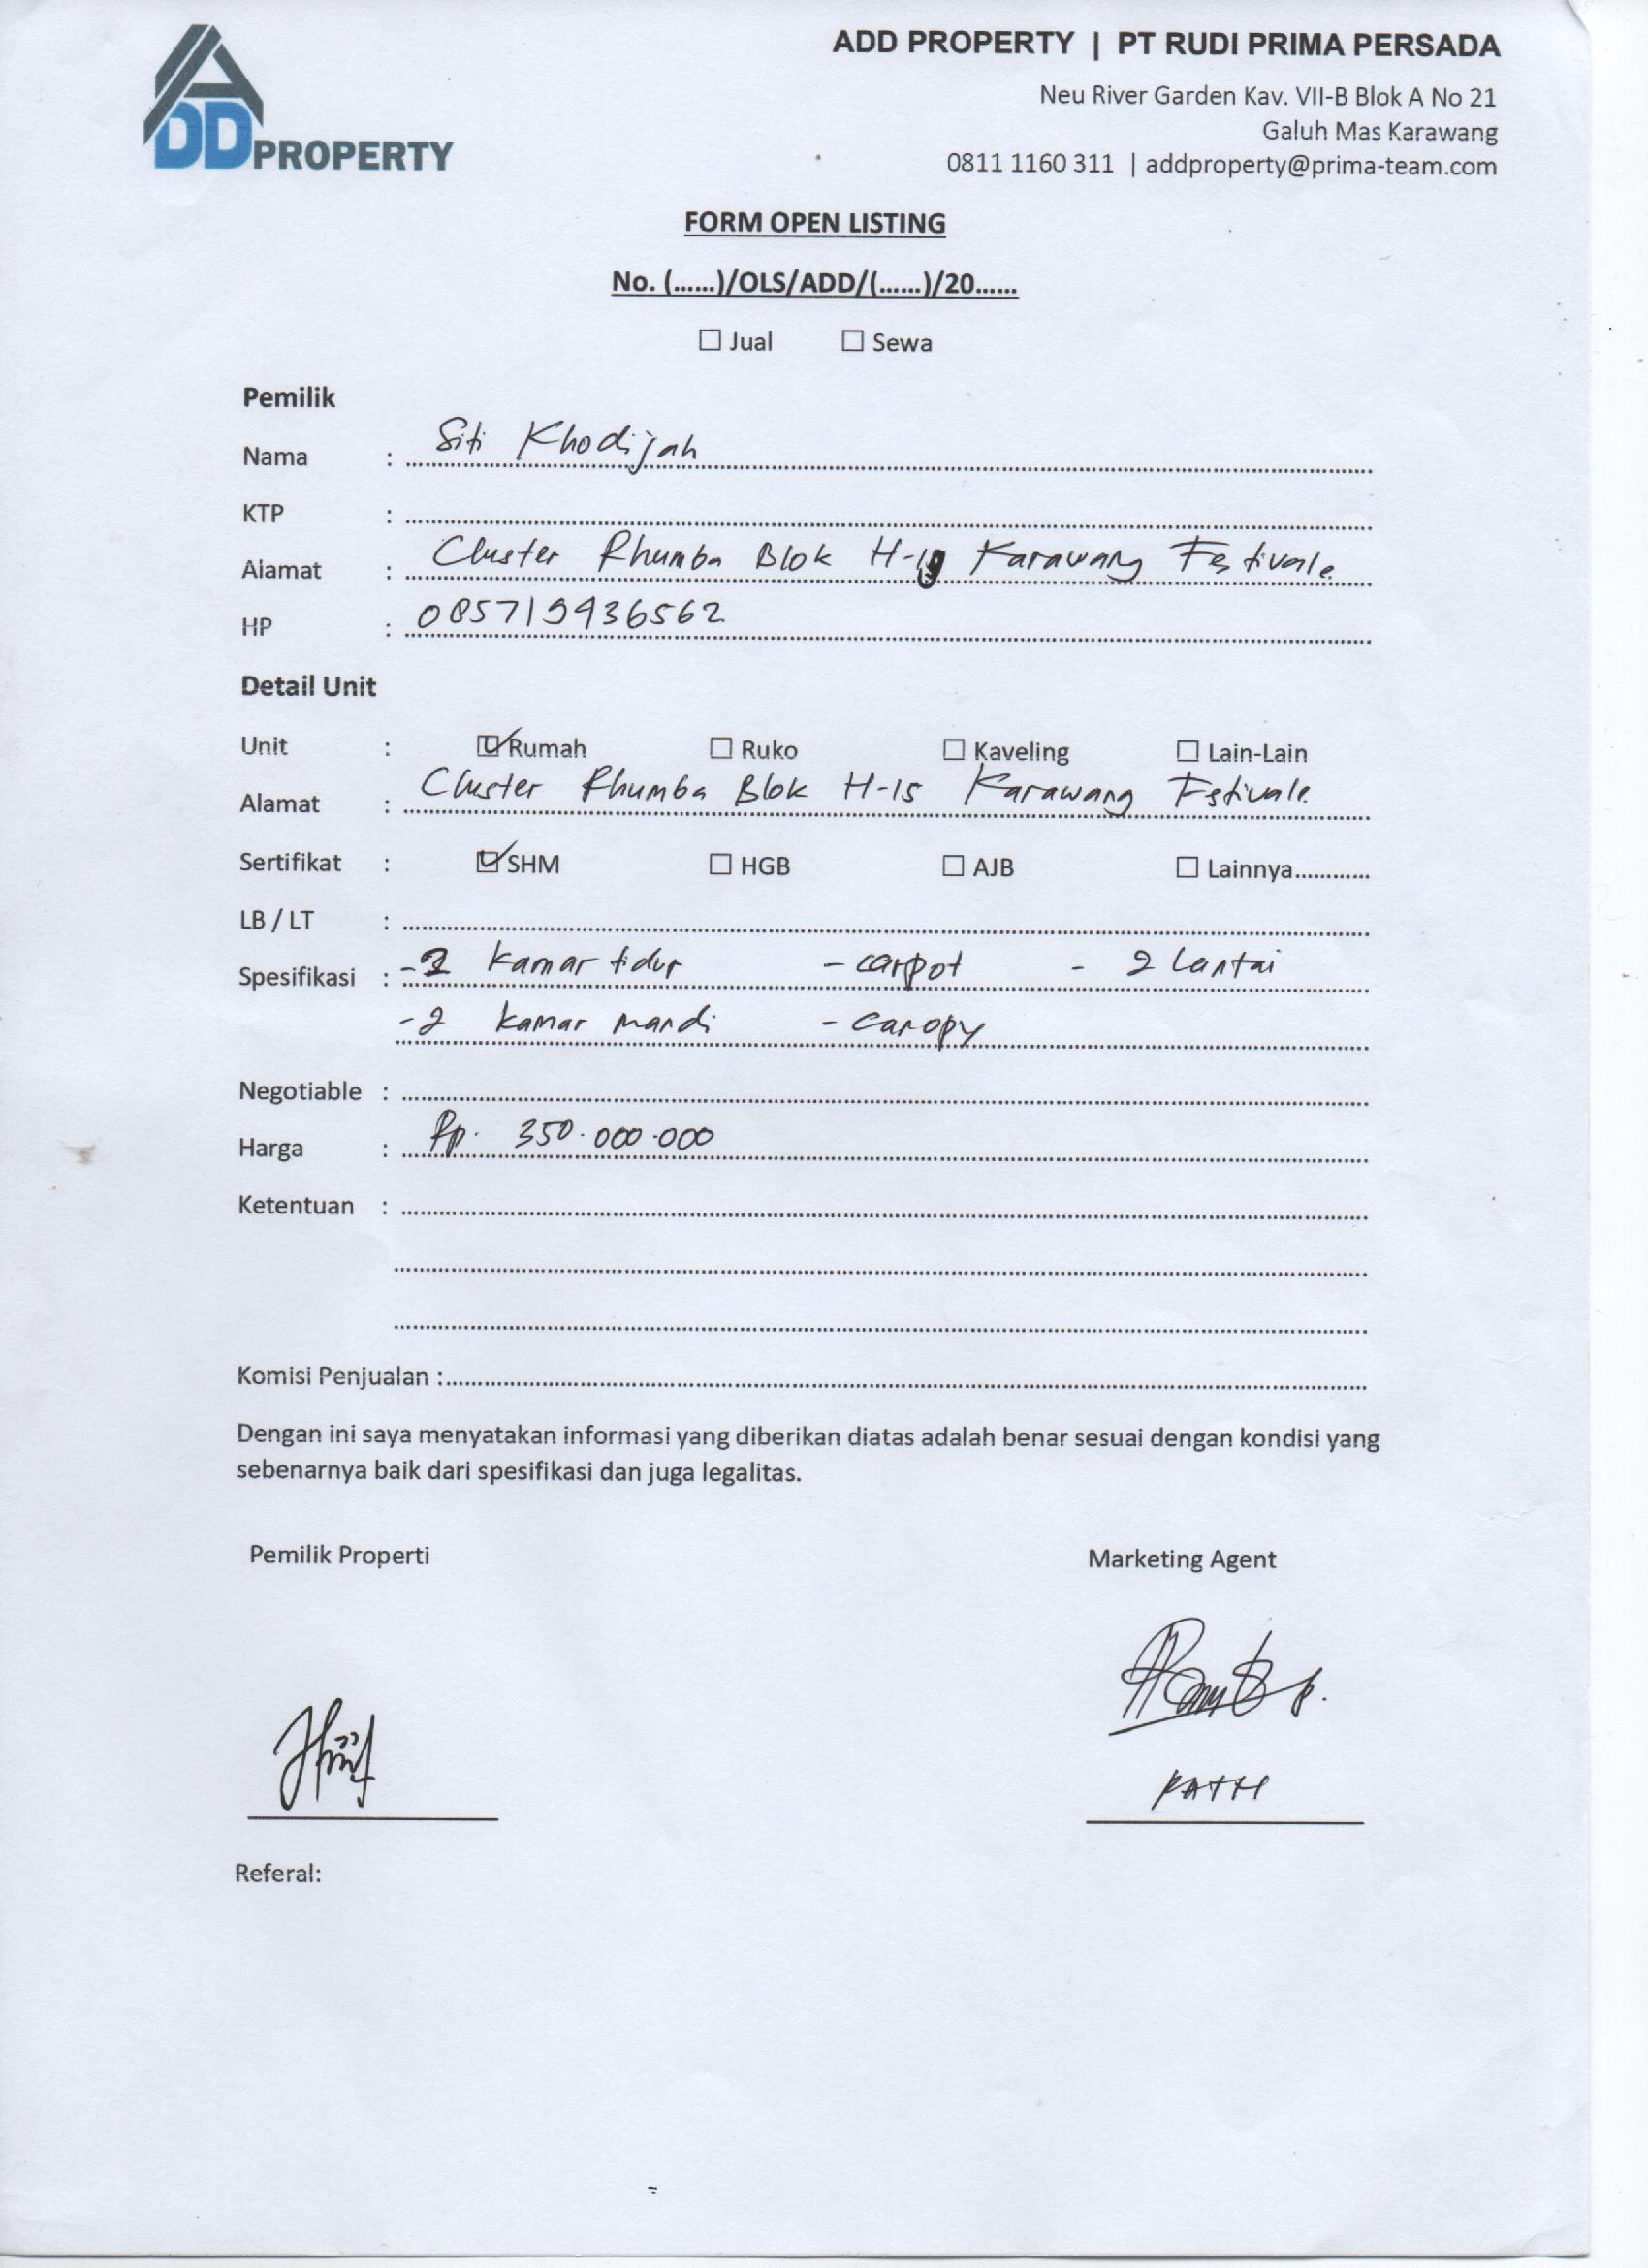 ADD PROPERTY
ADD PROPERTY | PT RUDI PRIMA PERSADA
Neu River Garden Kav. VII-B Blok A No 21
Galuh Mas Karawang
0811 1160 311 | addproperty@prima-team.com
FORM OPEN LISTING
No. (......)/OLS/ADD/(......)/20......
☐ Jual ☐ Sewa
Pemilik
Nama : Siti Khodijah
KTP :
Alamat : Cluster Rhumba Blok Karawang Festivale
HP : 085719936562
Detail Unit
Unit : ☑ Rumah ☐ Ruko ☐ Kaveling ☐ Lain-Lain
Alamat : Cluster Rhumba Blok H-15 Karawang Festivale
Sertifikat : ☑ SHM ☐ HGB ☐ AJB ☐ Lainnya............
LB / LT :
Spesifikasi : - kamar tidur - carpot - 2 lantai
- 2 kamar mandi - canopy
Negotiable :
Harga : Rp. 350.000.000
Ketentuan :
Komisi Penjualan :
Dengan ini saya menyatakan informasi yang diberikan diatas adalah benar sesuai dengan kondisi yang
sebenarnya baik dari spesifikasi dan juga legalitas.
Pemilik Properti Marketing Agent
Referal: